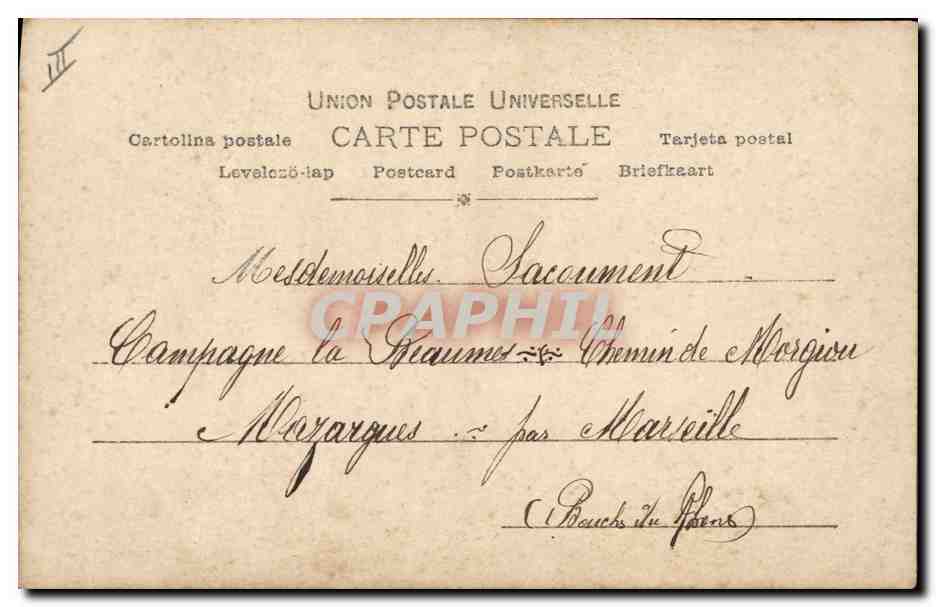 III
UNION POSTALE UNIVERSELLE
Cartolina postale CARTE POSTALE Tarjeta postal
Levelező-lap Postcard Postkarte Briefkaart
Mesdemoiselles. Sacoument
Campagne la Beaumes Chemin de Morgiou
Mazargues par Marseille
CPARHIL
(Bouchs du Rhone)